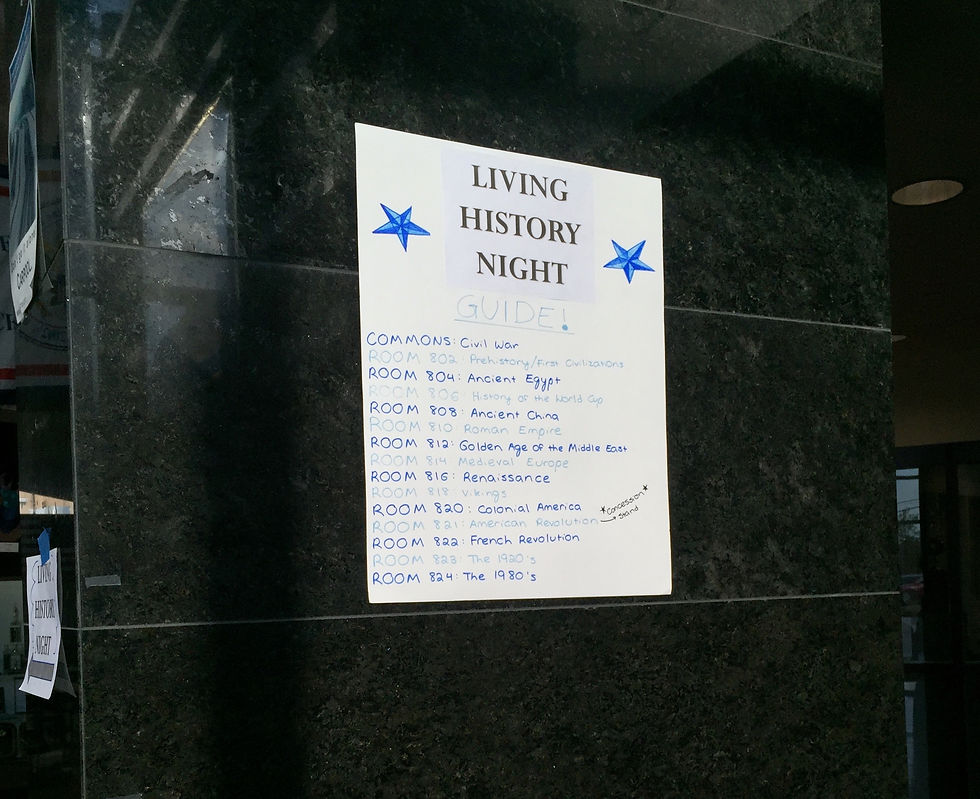 LIVING
HISTORY
NIGHT
GUIDE!
COMMONS: Civil War
ROOM 802: Prehistory/First Civilizations
ROOM 804: Ancient Egypt
ROOM 806: History of the World Cup
ROOM 808: Ancient China
ROOM 810: Roman Empire
ROOM 812: Golden Age of the Middle East
ROOM 814 Medieval Europe
ROOM 816: Renaissance
ROOM 818: Vikings
ROOM 820: Colonial America
ROOM 821: American Revolution
*Concession*
Stand
ROOM 822: French Revolution
ROOM 823: The 1920's
ROOM 824: The 1980's
LIVING
HISTORY
NIGHT